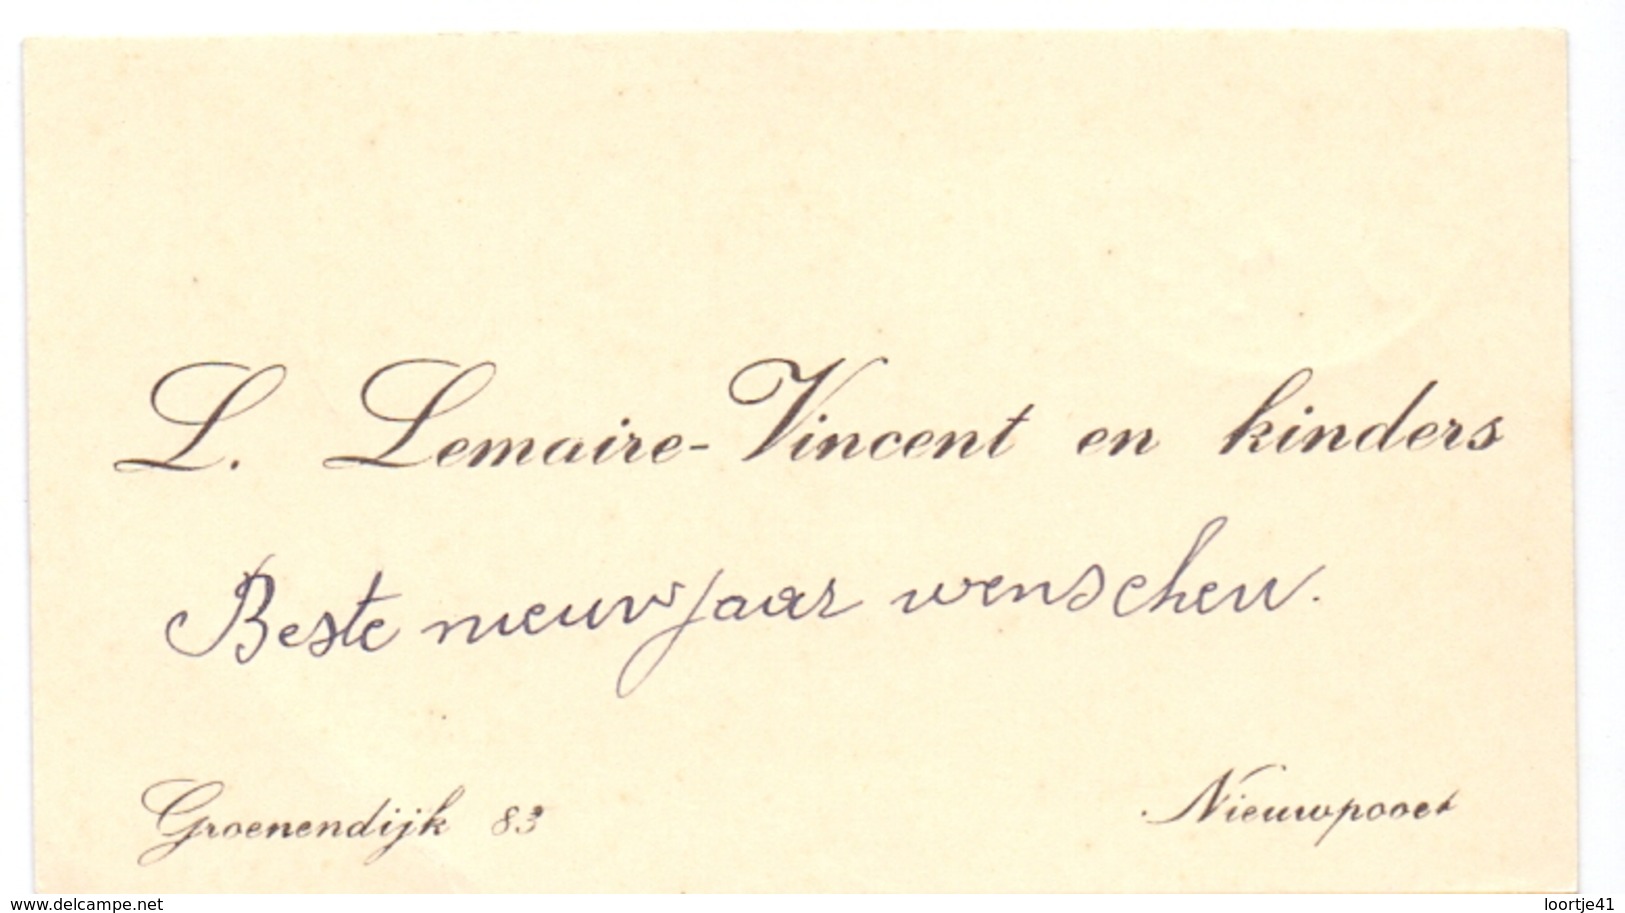 L. Lemaire-Vincent en kinders
Beste nieuwjaar wenschen.
Groenendijk 83
Nieuwpoort
www.delcampe.net
loortje41